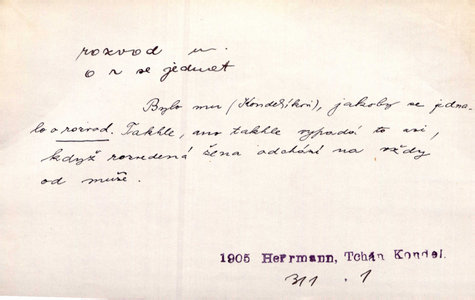 rozvod m.
o r se jednat
Bylo mu (Kondelíkovi), jakoby se jedna-
lo o rozvod. Takhle, ano takhle vypadá to asi,
když rozvedená žena odchází na vždy
od muže.
1905 Herrmann, Tchán Kondel.
311 . 1